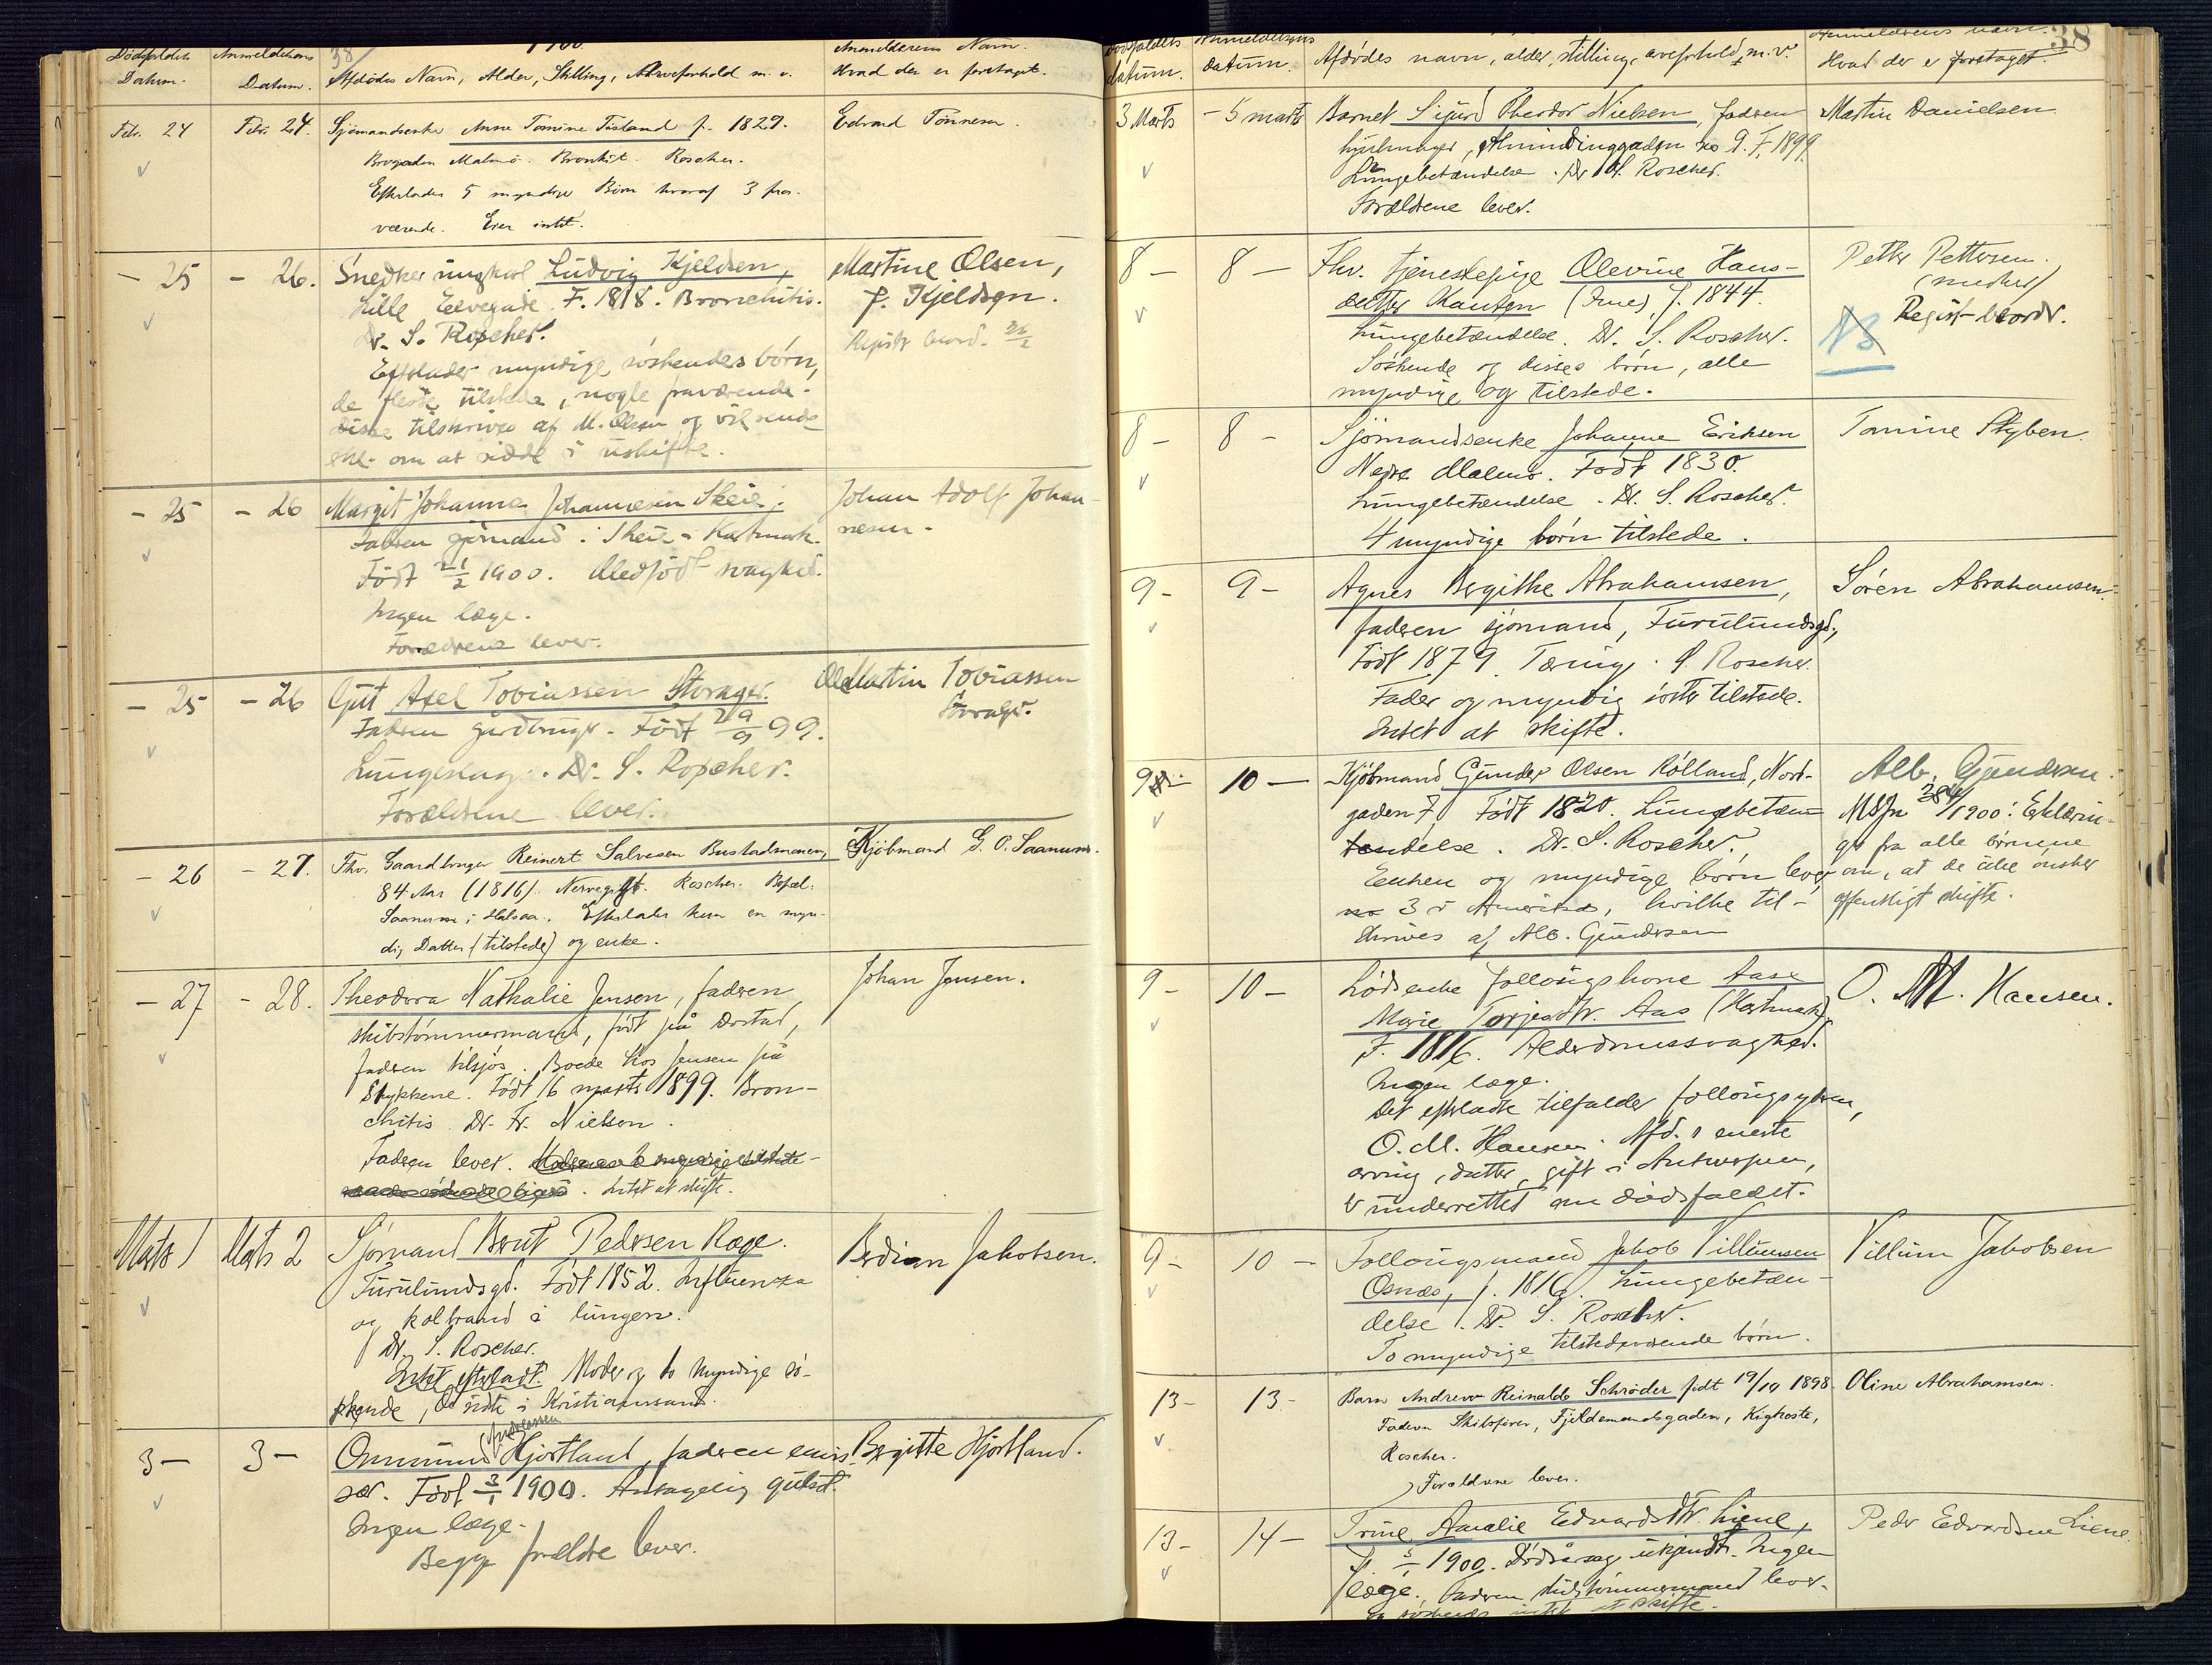 38
1900.
Dødsfaldets Datum. Anmeldelsens Datum. Afdødes Navn, Alder, Stilling, Arveforhold m. v. Anmelderens Navn. Hvad der er foretaget.
Febr. 24 Febr. 24. Sjømandsenke Anne Tomine Tisland f. 1829. Edvard Tønnesen.
Brogaden Malmö. Bronkit. Roscher.
Efterlader 5 myndige Børn hvoraf 3 fra-
værende. Eier intet.
- 25 - 26. Snedker ungkarl Ludvig Kjeldsen, Martine Olsen,
Lille Elvegade. F. 1818. Bronchitis. f. Kjeldsen.
Dr. S. Roscher.
Efterlader myndige søskendes børn,
de fleste tilstede, nogle fraværende.
Disse tilskrives af M. Olsen og vil sende
om at sidde i uskifte.
- 25 - 26 Margit Johanne Johannesen Skeie. Johan Adolf Johan-
Faderen sjømand i Skeie - Hartmark. nesen.
Født 21/2 1900. Medfødt svaghed.
Ingen læge.
Forældrene lever.
- 25 - 26 Gut Axel Tobiassen Stvrager. Ole Martin Tobiassen
Faderen gårdbruger. Født 29/9 99.
Lungeslag. Dr. S. Roscher.
Forældrene lever.
- 26 - 27. Fhv. Gaardbruger Reinert Salvesen Bustadmoen, Kjøbmand G. O. Saanum.
84 Aar (1816). Roscher. Bopæl:
Saanum i Halsaa. Efterlader kun en myn-
dig Datter (tilstede) og enke.
- 27 - 28. Theodora Nathalie Jensen, faderen Johan Jensen.
skibstømmermand, født på Ørstad,
faderen tilsjøs. Boede hos Jensen på
Stykkene. Født 16 marts 1899. Bron-
chitis. Dr. Fr. Nielsen.
Faderen lever.
Intet at skifte.
Marts 1 Marts 2 Sjømand Bernt Pedersen Roge. Berdian Jakobsen.
Furulundsgd. Født 1852. Influenza
og koldbrand i lungen.
Dr. S. Roscher.
Intet efterladt. Moder og to myndige sø-
skende, i Kristianssand.
3 - 3 - Ommund (Andreassen) Hjortland, faderen emis- Bergitte Hjortland.
sær. Født 3/1 1900. Antagelig gulsot.
Ingen læge.
Begge forældre lever.
38
Dødsfaldets datum. Anmeldelsens datum. Afdødes navn, alder, stilling, arveforhold, m. v. Anmelderens navn. Hvad der er foretaget.
3 Marts - 5 marts Barnet Sigurd Theodor Nielsen, faderen Martin Danielsen.
hjulmager, Almindinggaden F. 1899
Lungebetændelse. Dr. S. Roscher.
Forældrene lever.
8 - 8 - Fhv. tjenestepige Olevine Hans- Petter Pettersen.
datter Kaurtzen f. 1844. (snedker)
Lungebetændelse. Dr. S. Roscher. NB
Søskende og disses børn, alle
myndige og tilstede.
8 - 8 - Sjømandsenke Johanne Eriksen Tomine Styben.
Nedre Malmö. Født 1830.
Lungebetændelse. Dr. S. Roscher.
4 myndige børn tilstede.
9 - 9 - Agnes Bergithe Abrahamsen, Søren Abrahamsen.
faderen sjømand, Furulundsgd.,
Født 1879. Tæring. S. Roscher.
Fader og myndig søster tilstede.
Intet at skifte.
9 - 10 - Kjøbmand Gunder Olsen Rölland, Nord- Alb. Gundersen.
gaden 7. Født 1820. Lungebetæn- 1900: Erklærin-
delse. Dr. S. Roscher. ger fra alle børnene
Enken og myndige børn lever om, at de ikke ønsker
3 i Amerika, hvilke til- offentligt skifte.
skrives af Alb. Gundersen
9 - 10 - Lødsenke follougskone Aase O. M. Hansen.
Marie Torjesdtr. Aas (Hartmark)
F. 1816. Alderdomssvaghed.
Ingen læge.
Det efterladte tilfalder follougsyderen,
O. M. Hansen. Afd.s eneste
arving, datter, gift i Antwerpen,
er underrettet om dødsfaldet.
9 - 10 - Follougsmand Jakob Villumsen Villum Jakobsen
Osnæs, f. 1816. Lungebetæn-
delse. Dr. S. Roscher.
To myndige tilstedeværende børn.
13 - 13 - Barn Andreas Reinaldo Schrøder født 19/10 1898. Oline Abrahamsen.
Faderen Skibsfører, Fjeldemandsgaden, Kighoste,
Roscher.
Forældrene lever.
13 - 14 - Trine Amalie Edvardsdtr. Liene, Peder Edvardsen Liene
f. 5/1 1900. Dødsårsag ukjendt. Ingen
læge. Faderen skibstømmermand lever.
og søskende intet at skifte.